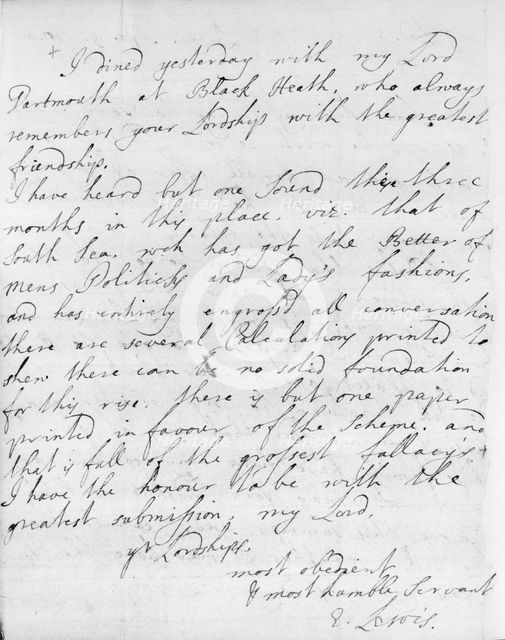 + I dined yesterday with my Lord
Dartmouth at Black Heath, who always
remembers your Lordship with the greatest
friendship.
I have heard but one Sound these three
months in this place. viz. that of
South Sea. wch has got the Better of
mens Politicks and Lady's fashions,
and has entirely engross'd all conversation
there are several Calculations printed to
shew there can be no solid foundation
for this rise. there is but one paper
printed in favour of the Scheme. and
that is full of the grossest fallacy's
I have the honour to be with the
greatest submission, my Lord,
yr Lordships,
most obedient
& most humble Servant
E. Lewis.
Heritage
Heritage
Heritage